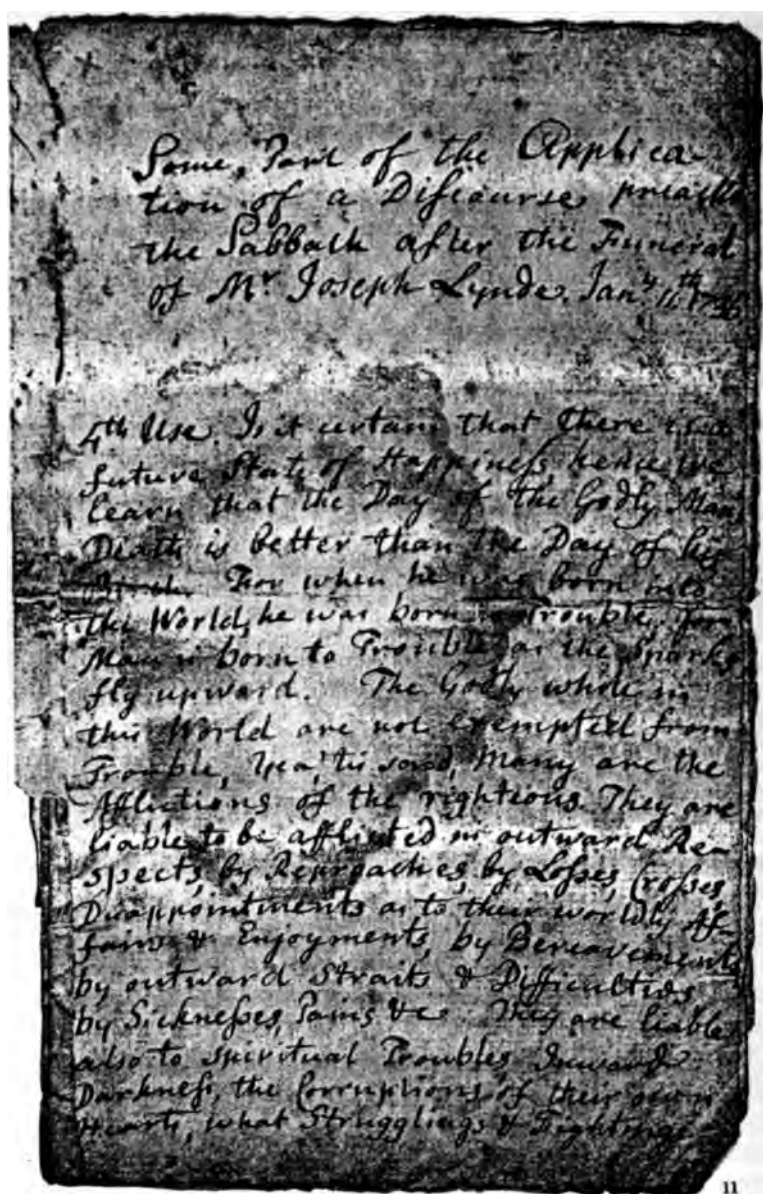 Some Part of the Applica-
tion of a Discourse preach'd
the Sabbath after the Funeral
of Mr. Joseph Lynde. Jany. 11th
4th Use. Is it certain that there is a
future State of Happiness, hence we
learn that the Day of the Godly Man's
Death is better than the Day of his
Birth. For when he was born into
the World, he was born to trouble, for
Man is born to Trouble, as the Sparks
fly upward. The Godly while in
this World are not exempted from
Trouble, Yea, 'tis said, Many are the
Afflictions of the righteous. They are
liable to be afflicted in outward Re-
spects, by Reproaches, by Losses, Crosses,
Disappointments as to their worldly Af-
fairs & Enjoyments, by Bereavements,
by outward Straits & Difficulties
by Sicknesses, Pains &c. They are liable
also to spiritual Troubles, Inward
Darkness, the Corruptions of their own
Hearts, what Strugglings & Fightings
11